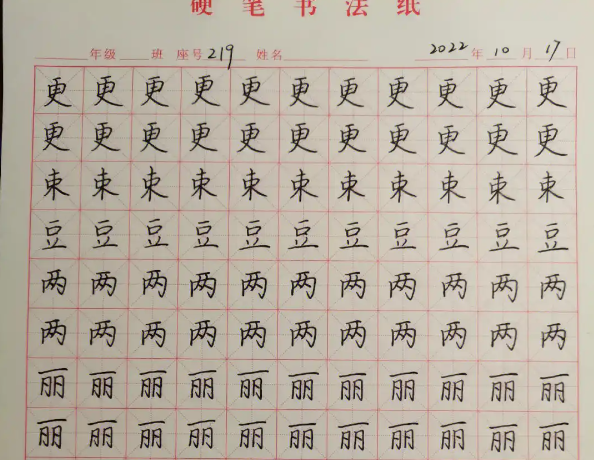 硬笔书法纸
年级 班 座号 219 姓名 2022 年 10 月 17 日
更更更更更更更更更更更
更更更更更更更更更更更
束束束束束束束束束束束
豆豆豆豆豆豆豆豆豆豆豆
两两两两两两两两两两两
两两两两两两两两两两两
丽丽丽丽丽丽丽丽丽丽丽
丽丽丽丽丽丽丽丽丽丽丽